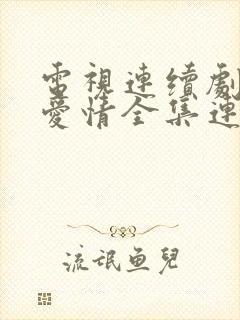 電視連續劇
愛情全集連
流氓魚兒